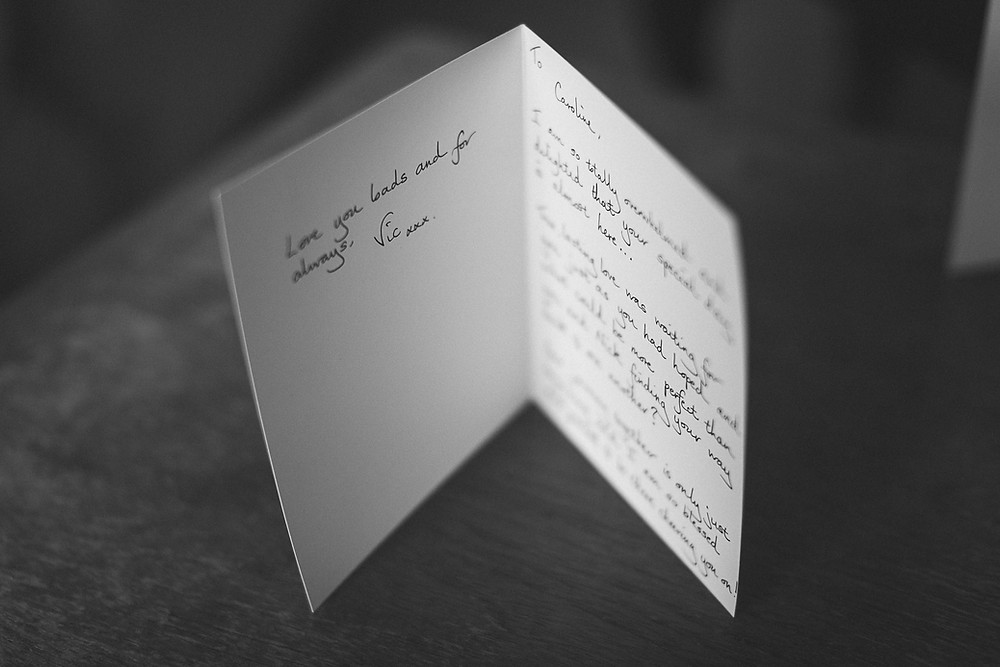 Love you loads and for
always. Vic xxx.
To
Caroline,
I am so totally overwhelmed and
delighted that your special day
is almost here...
lasting love was waiting for
you as you had hoped and
could be more perfect than
finding your way
one another?
together is only just
I am so blessed
to be there cheering you on!